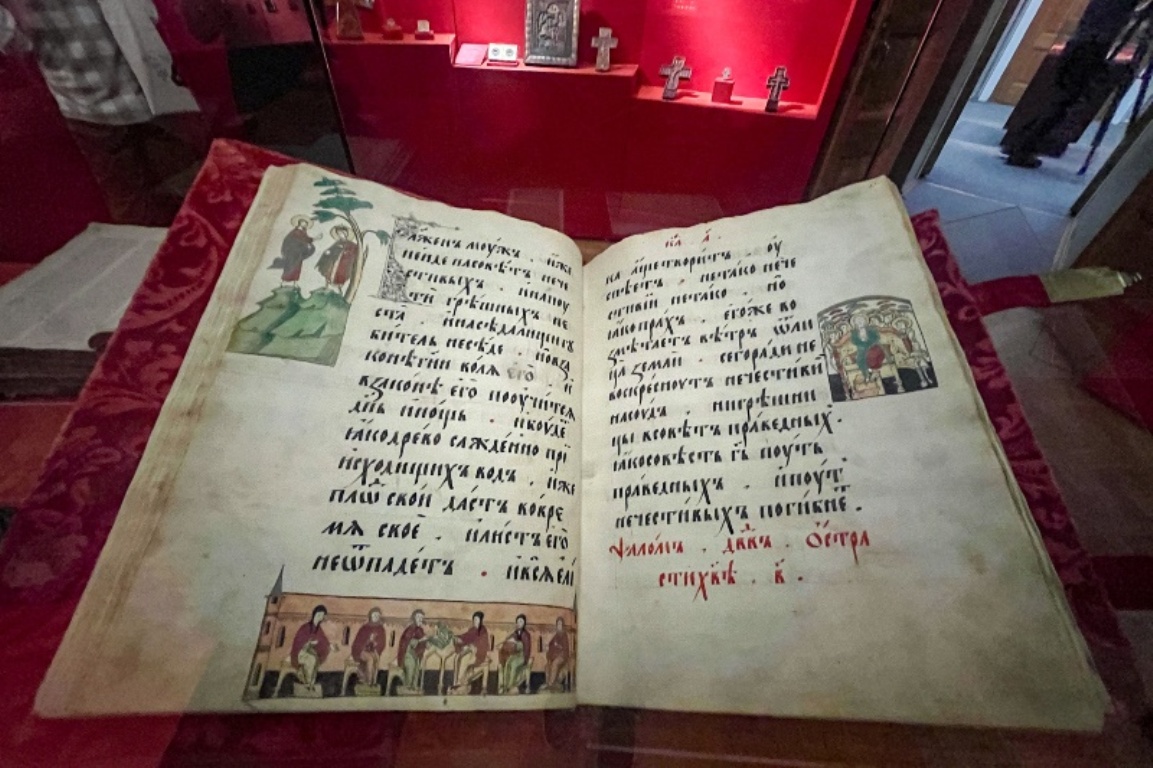 лаженъ моужъ . иже
неиде насовѣтъ нече
стивыхъ . инапоу
ти грѣшныхъ не
ста . инасѣдалищигу
битель несѣде . новза
конѣгни волѧ его . и
взаконѣ его поучитсѧ
днь инощь . ибоуде
ꙗкодрево саждено при
исходищихъ водъ . иже
плѡ свои дастъ вовре
мѧ свое . илистъ его
неѿпадетъ . ивсѧ ели
ка аще творитъ . оу
спѣетъ . нетако нече
стивїи нетако . но
ꙗкопрахъ . егоже во
змѣтаетъ вѣтръ ѿли
ца земли . сегоради не
воскресноутъ нечестивїи
насоудъ . нигрѣшни
цы всовѣтъ праведныхъ .
ꙗковѣсть гь поуть
праведныхъ . ипоут
нечестивыхъ погибне .
ѱаломъ . двдъ .
стихѡвъ . в .